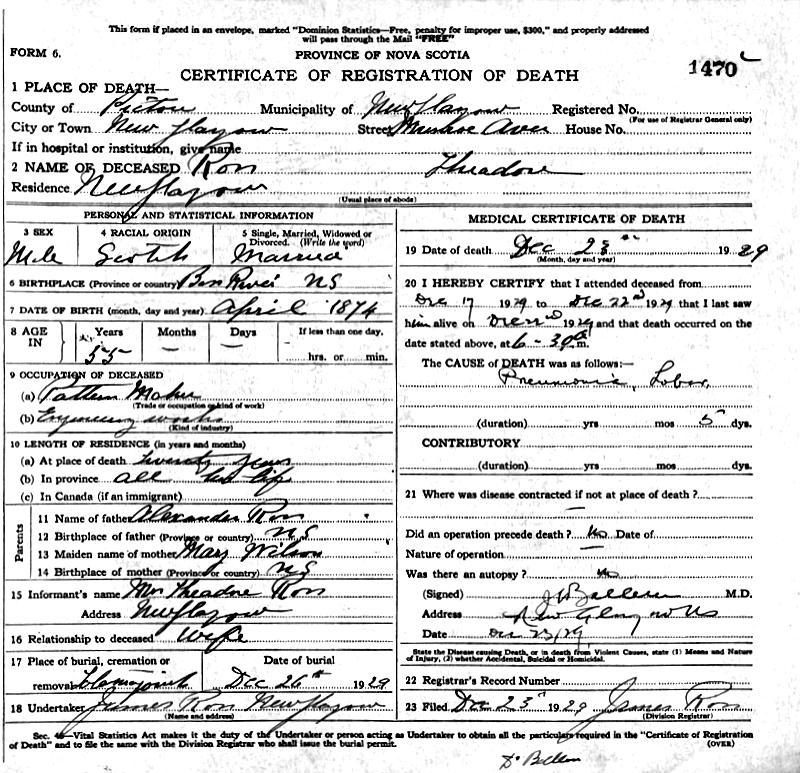 This form if placed in an envelope, marked "Dominion Statistics—Free, penalty for improper use, $300," and properly addressed
will pass through the Mail "FREE"
FORM 6.
PROVINCE OF NOVA SCOTIA
CERTIFICATE OF REGISTRATION OF DEATH
1470
1 PLACE OF DEATH—
County of Pictou Municipality of New Glasgow Registered No.
(For use of Registrar General only)
City or Town New Glasgow Street Munroe Ave House No.
If in hospital or institution, give name
2 NAME OF DECEASED Ross Theadore
Residence New Glasgow
(Usual place of abode)
PERSONAL AND STATISTICAL INFORMATION
3 SEX 4 RACIAL ORIGIN 5 Single, Married, Widowed or Divorced. (Write the word)
Male Scotch Married
6 BIRTHPLACE (Province or country) River NS
7 DATE OF BIRTH (month, day and year) April 1874
8 AGE IN Years Months Days If less than one day,
55 — — hrs. or min.
9 OCCUPATION OF DECEASED
(a) Pattern Maker
(Trade or occupation or kind of work)
(b) Engineering works
(Kind of industry)
10 LENGTH OF RESIDENCE (in years and months)
(a) At place of death twenty years
(b) In province all his life
(c) In Canada (if an immigrant)
Parents
11 Name of father Alexander Ross
12 Birthplace of father (Province or country) NS
13 Maiden name of mother Mary Wilson
14 Birthplace of mother (Province or country) NS
15 Informant's name Mrs Theadore Ross
Address New Glasgow
16 Relationship to deceased wife
17 Place of burial, cremation or removal Date of burial
Dec 26th 1929
18 Undertaker James Ross New Glasgow
(Name and address)
MEDICAL CERTIFICATE OF DEATH
19 Date of death Dec 23rd 1929
(Month, day and year)
20 I HEREBY CERTIFY that I attended deceased from
Dec 17 1929 to Dec 22nd 1929 that I last saw
him alive on Dec 22nd 1929 and that death occurred on
date stated above, at 6-30 a m.
The CAUSE of DEATH was as follows:—
Pneumonia, Lobar
(duration) yrs mos 5 dys.
CONTRIBUTORY
(duration) yrs mos dys.
21 Where was disease contracted if not at place of death?
—
Did an operation precede death? No Date of
Nature of operation —
Was there an autopsy? No
(Signed) M.D.
Address New Glasgow NS
Date Dec 23/29
State the Disease causing Death, or in death from Violent Causes, state (1) Means and Nature of Injury, (2) whether Accidental, Suicidal or Homicidal.
22 Registrar's Record Number
23 Filed Dec 23rd 1929 James Ross
(Division Registrar)
Sec. —Vital Statistics Act makes it the duty of the Undertaker or person acting as Undertaker to obtain all the particulars required in the "Certificate of Registration
of Death" and to file the same with the Division Registrar who shall issue the burial permit.
(OVER)